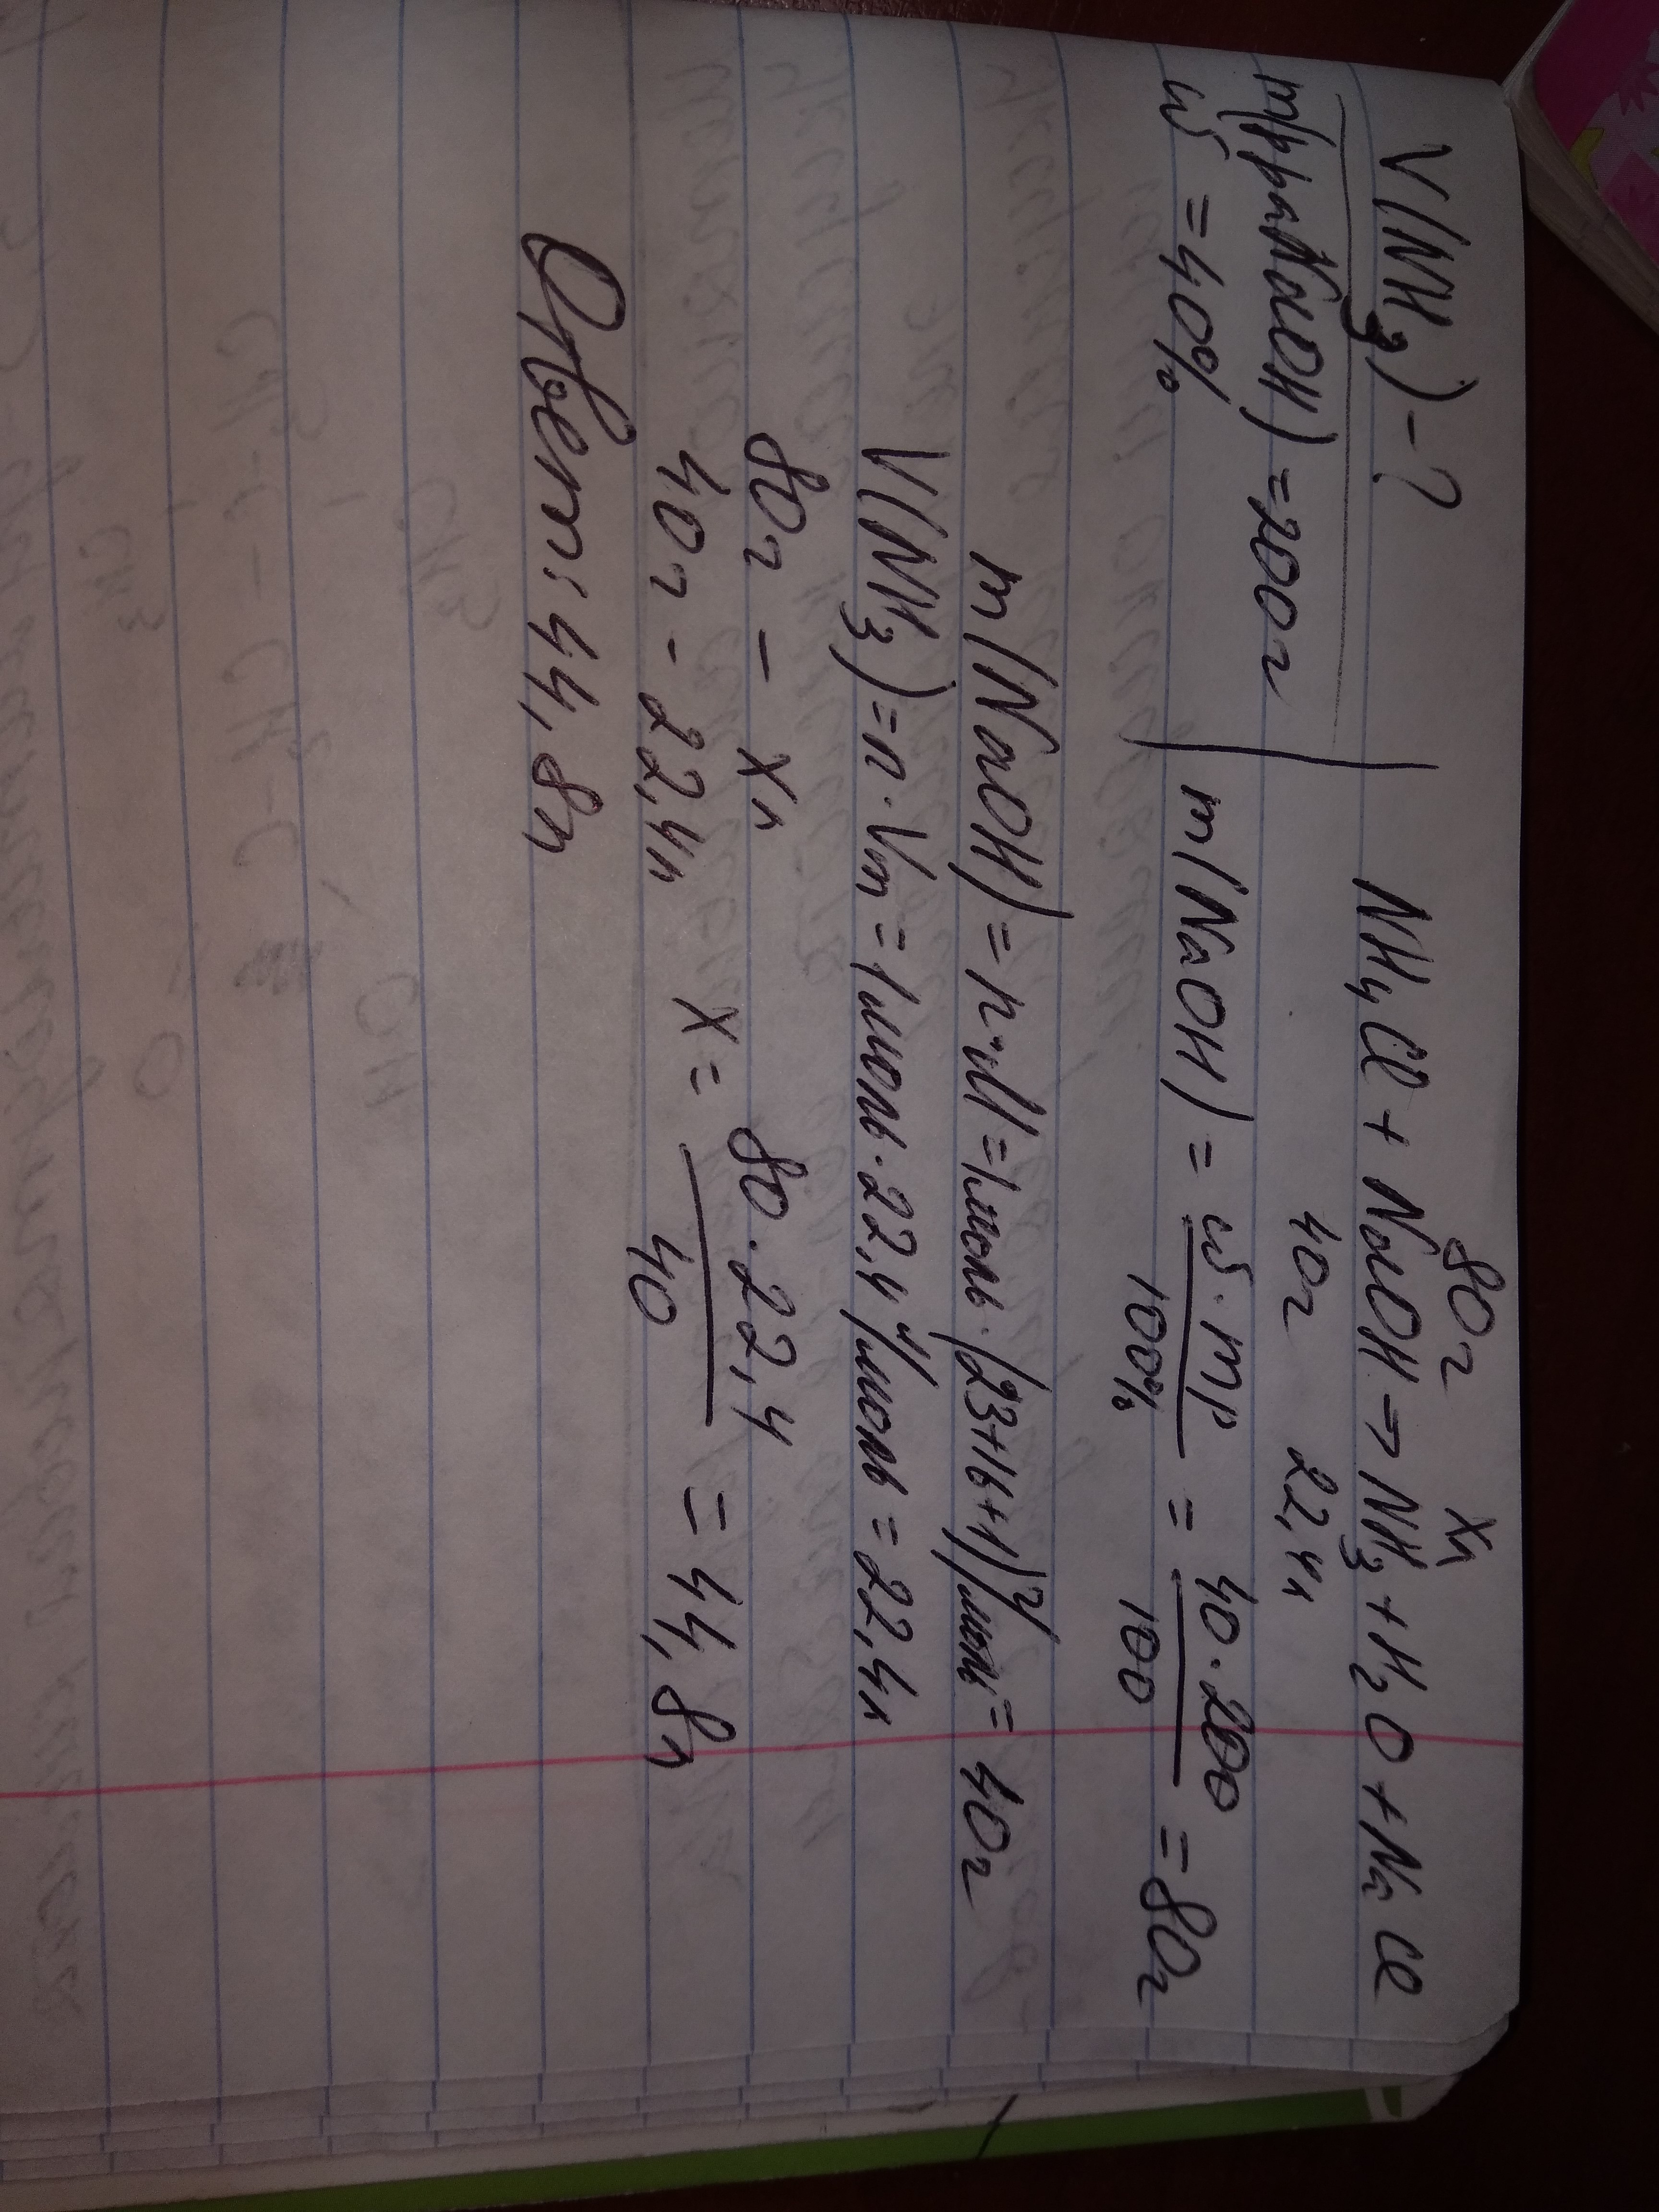 V(NH₃) - ?
m(р-ра NaOH) = 200г
ω = 40%
80г xл
NH₄Cl + NaOH → NH₃ + H₂O + NaCl
40г 22,4л
m(NaOH) = ω · mр / 100% = 40 · 200 / 100 = 80г
m(NaOH) = n · M = 1моль · (23+16+1) г/моль = 40г
V(NH₃) = n · Vm = 1моль · 22,4 л/моль = 22,4л
80г - xл
40г - 22,4л x = 80 · 22,4 / 40 = 44,8л
Ответ: 44,8л